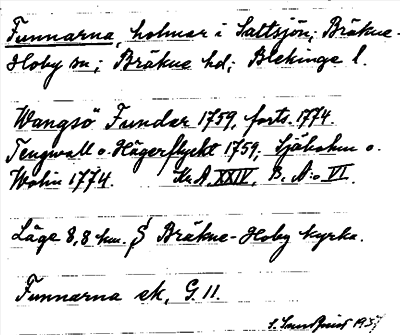 Funnarna, holmar i Saltsjön; Bräkne-
Hoby sn; Bräkne hd; Blekinge l.
Wangsö Fundar 1759, forts. 1774.
Tengwall o. Hägerflyckt 1759; Sjöbohm o.
Wolin 1774. K.A. XXIV. B. A:o VI.
Läge 8,8 km. S Bräkne-Hoby kyrka.
Funnarna ek, G. 11.
S. Sundquist 1937